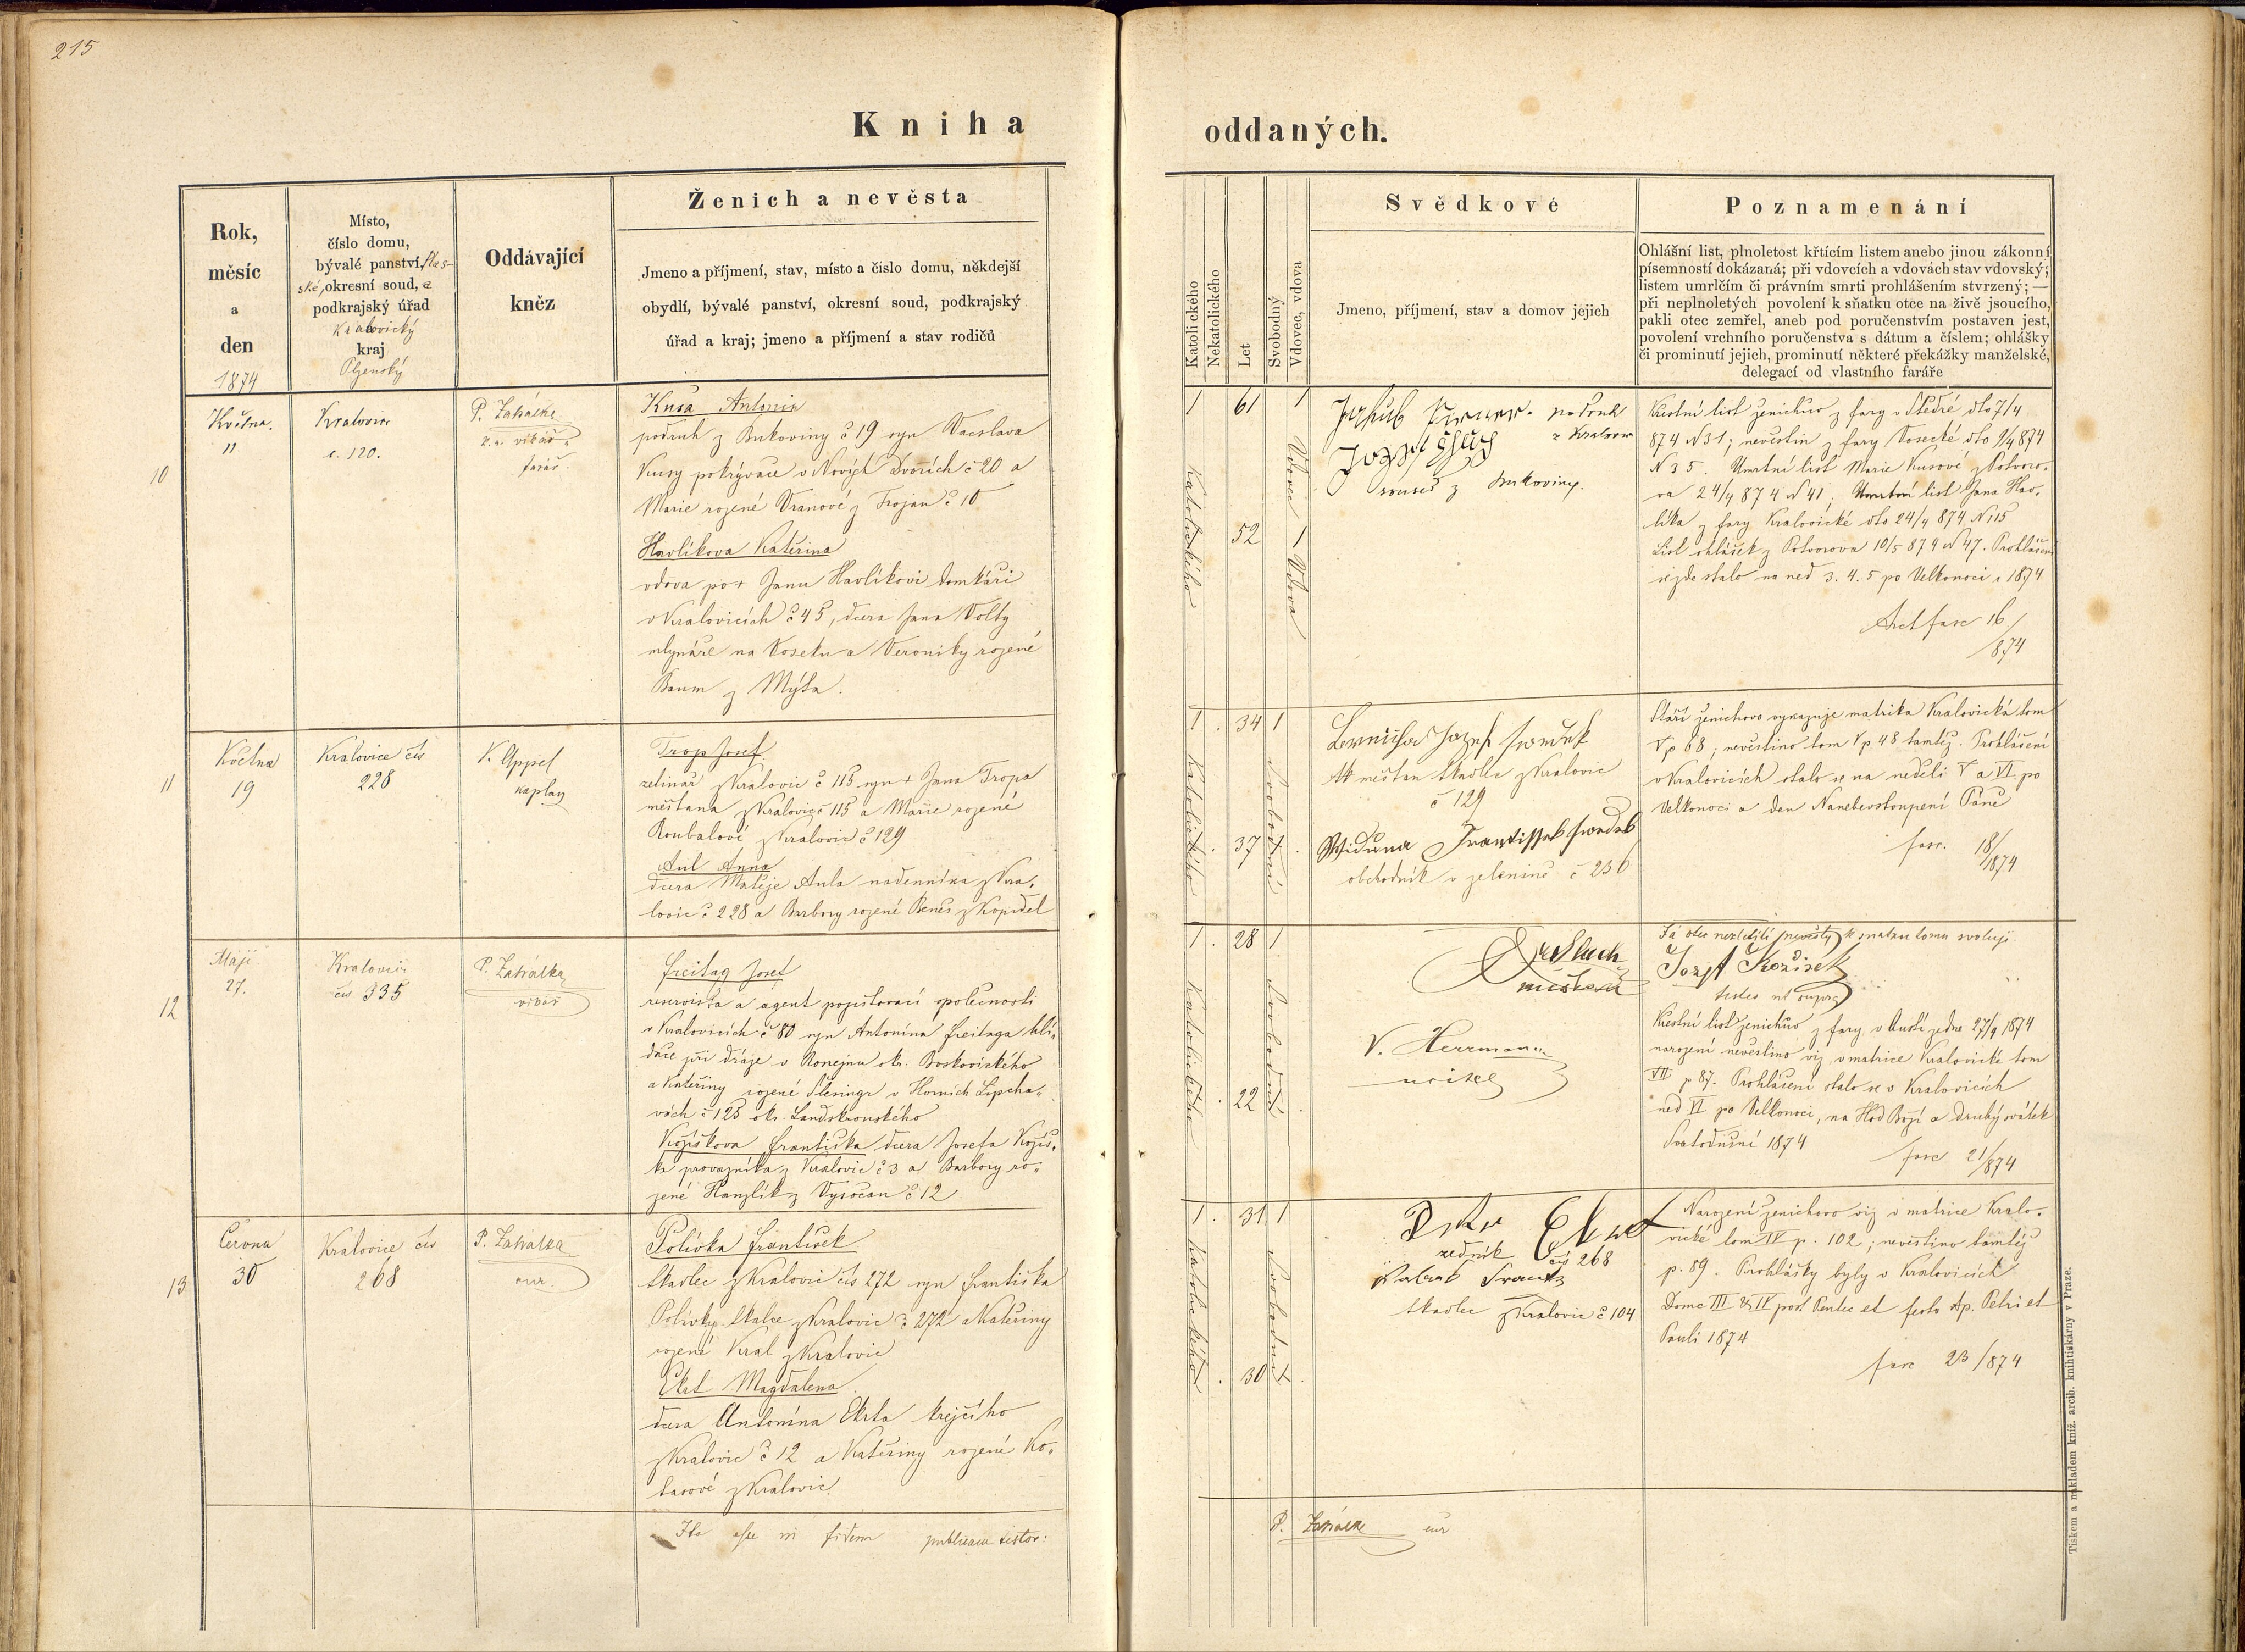 215
Kniha
oddaných.
Rok,
měsíc
a
den
1874
Místo,
číslo domu,
bývalé panství
okresní soud, a
podkrajský úřad
Kralovický
kraj
Plzenský
Oddávající
kněz
Ženich a nevěsta
Jmeno a příjmení, stav, místo a čislo domu, někdejší
obydlí, bývalé panství, okresní soud, podkrajský
úřad a kraj; jmeno a příjmení a stav rodičů
Katolického
Nekatolického
Let
Svobodný
Vdovec, vdova
Svědkové
Jmeno, příjmení, stav a domov jejich
Poznamenání
Ohlášní list, plnoletost křtícím listem anebo jinou zákonní
písemností dokázaná; při vdovcích a vdovách stav vdovský;
listem umrlčím či právním smrti prohlášením stvrzený; —
při neplnoletých povolení k sňatku otce na živě jsoucího,
pakli otec zemřel, aneb pod poručenstvím postaven jest,
povolení vrchního poručenstva s dátum a číslem; ohlášky
či prominutí jejich, prominutí některé překážky manželské,
delegací od vlastního faráře
10
Května
11
Kralovice
č. 120.
P. Zahálka
vikář
farář.
Kusa Antonin
podruh z Bukoviny č 19 syn Vacslava
Kusy pokrývače v Nových Dvorích č 20 a
Marie rozené Vranové z Trojan č 10
Havlíkova Kateřina
vdova po + Janu Havlíkovi domkáři
v Kralovicích č 45, dcera Jana Volty
mlynáře na Voseku a Veroniky rozené
Baum z Mýta.
1
61
1
Vdovec
Katolického
52
1
Vdova
Jakub podruh
z Kralovic
Jozef
soused z Bukoviny.
Křestní list ženichův z fary v Štědré dto 7/4
874 N 31; nevěstin z fary Vosecké dto 9/4 874
N 35. Umrtní list Marie Kusové z Potvoro-
va 24/4 874 N 41. Umrtní list Jana Hav-
líka z fary Kralovické dto 24/4 874 N 115
List ohlášek z Potvorova 10/5 874 N 47. Prohlášení
zde stalo na ned 3. 4. 5 po Velkonoci r 1874
fasc 16/
874
11
Května
19
Kralovice čis
228
V. Appel
kaplan
Trop Josef
zelinář z Kralovic č 115 syn + Jana Tropa
měštana z Kralovic č 115 a Marie rozené
Roubalové z Kralovic č 129
Aul Anna
dcera Matěje Aula nadenníka z Kra-
lovic č 228 a Barbory rozené Beneš z Kopidel
1
34
1
Katolického
Svobodní
37
1
Jozef swedek
měštan tkadlec z Kralovic
č 129
Widuna Frantissek swedek
obchodník v zelenině č 256
Stáří ženichovo vykazuje matrika Kralovická tom
V p 68; nevěstino tom V p 48 tamtéž. Prohlášení
v Kralovicích stalo se na neděli V a VI. po
Velkonoci a den Nanebevstoupení Páně
fasc. 18/
1874
12
Máje
27.
Kralovice
čis 335
P. Zahálka
vikář
Freitag Josef
reservista a agent pojistovací společnosti
v Kralovicích č 80 syn Antonína Freitaga hlí-
dače při dráze v Ronejnu okr. Boskovického
a Kateřiny rozené Šlesingr v Horních Lipcha-
vách č 125 okr. Landskronského
Kožíškova Františka dcera Josefa Kožíš-
ka provazníka z Kralovic č 3 a Barbory ro-
zené Hanzlík z Vysočan č 12
1
28
1
Katolického
Svobodní
22
1
měštan
V. Herrmann
učitel
Já otec nezletilé nevěsty k snatku tomu svoluji
Jozef Kozíšek
testes ut supra
Křestní list ženichův z fary v Austí ze dne 27/4 1874
narození nevěstino viz v matrice Kralovické tom
VII p 87. Prohlášení stalo se v Kralovicích
ned VI po Velkonoci, na Hod Boží a druhý svátek
Svatodušní 1874
fasc 21/874
13
Června
30
Kralovice čis
268
P. Zahálka
cur.
Polívka František
tkadlec z Kralovic čis 272 syn Františka
Polívky tkalce z Kralovic č 272 a Kateřiny
rozené Kral z Kralovic
Ekrt Magdalena
dcera Antonína Ekrta krejčího
z Kralovic č 12 a Kateřiny rozené Ko-
tasové z Kralovic
1
31
1
Katolického
Svobodní
30
1
Ekrt
zedník čis 268
Frantz
tkadlec z Kralovic č 104
Narození ženichovo viz v matrice Kralo-
vické tom IV p. 102; nevěstino tamtéž
p. 89. Prohlášky byly v Kralovicích
Domc III & IV post Pentec et festo Ap. Petri et
Pauli 1874
fasc 23/874
Ita esse in fidem publicam testor:
P. Zahálka cur
Tiskem a nákladem kníž. arcib. knihtiskárny v Praze.